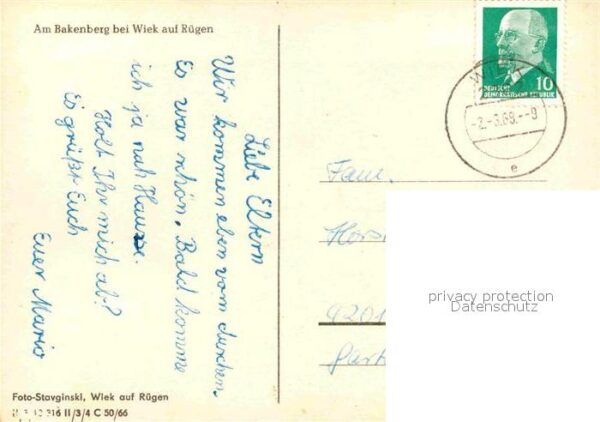 Am Bakenberg bei Wiek auf Rügen
Liebe Eltern
Wir kommen eben vom duschen.
Es war schön. Bald komme
ich ja nach Hause.
Holt Ihr mich ab?
Es grüßt Euch
Euer Mario
DEUTSCHE
DEMOKRATISCHE REPUBLIK
10
WIEK
-2.-3.69.--9
e
Fam.
Horst
9201
privacy protection
Datenschutz
Foto-Stavginski, Wiek auf Rügen
316 II/3/4 C 50/66